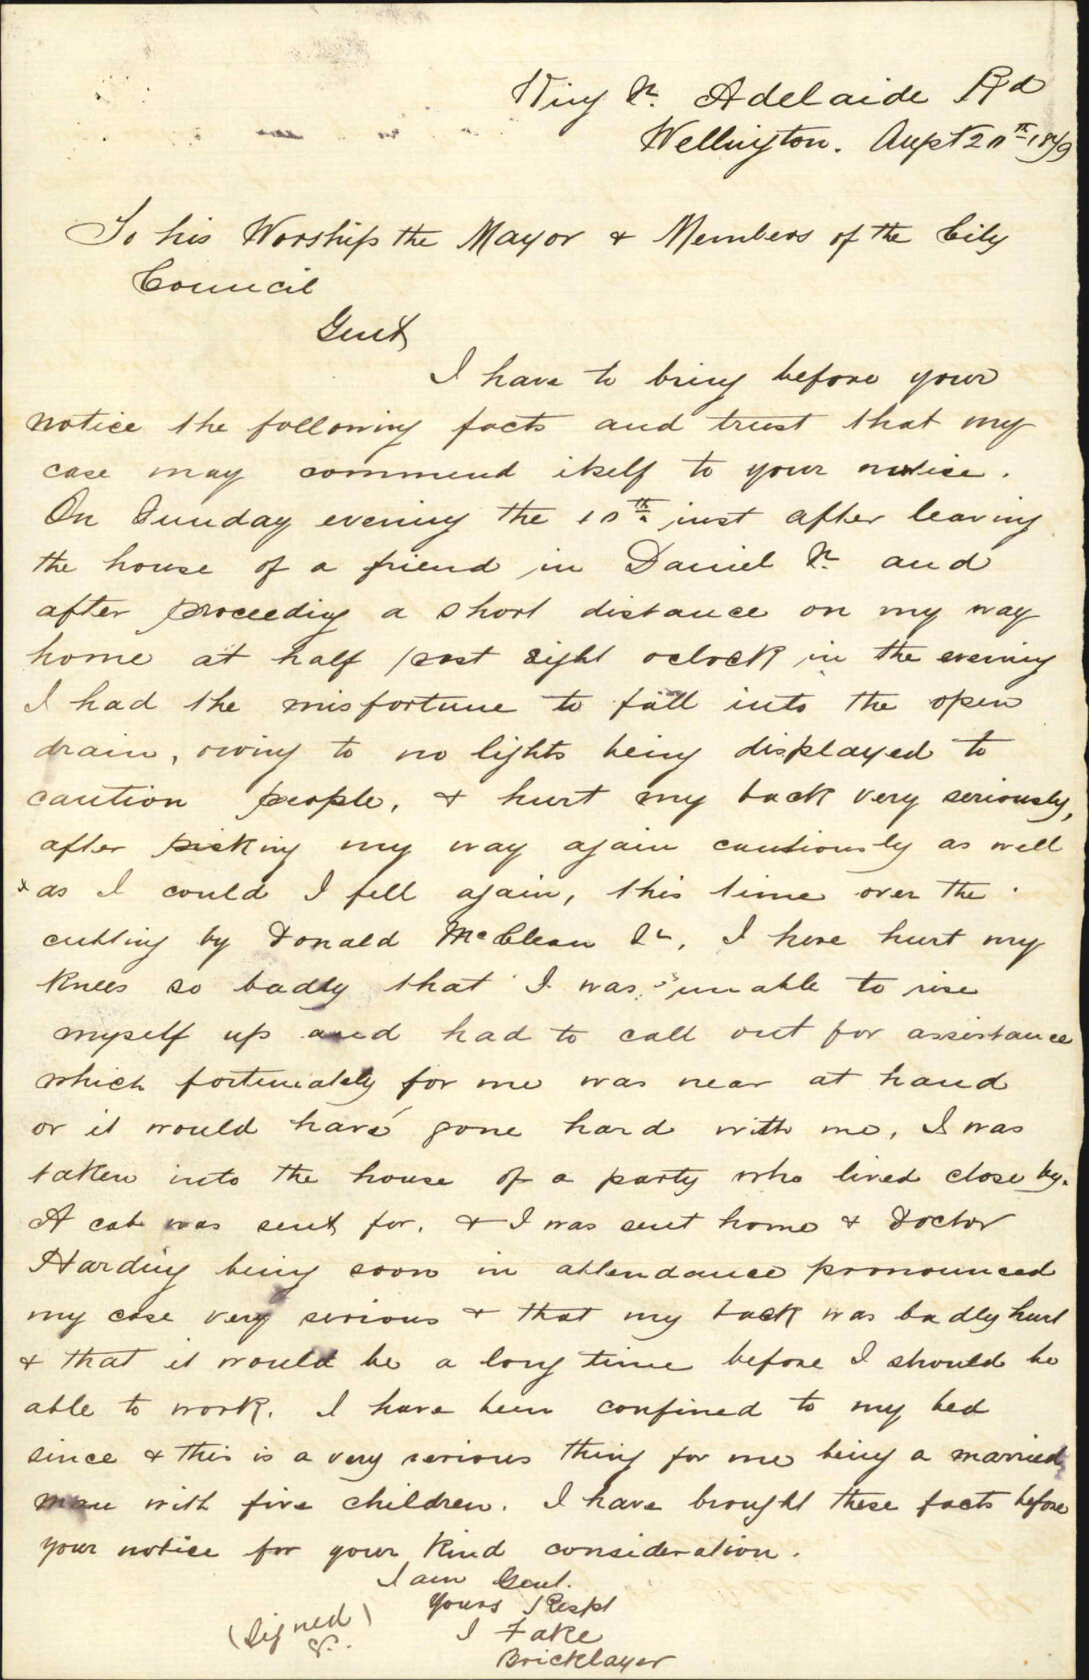 King St. Adelaide Rd
Wellington. Augst 20th 1879
To his Worship the Mayor & Members of the City
Council
Gent
I have to bring before your
notice the following facts and trust that my
case may commend itself to your notice.
On Sunday evening the 10th inst after leaving
the house of a friend in Daniel St. and
after proceeding a short distance on my way
home at half past eight oclock in the evening
I had the misfortune to fall into the open
drain, owing to no lights being displayed to
caution people, & hurt my back very seriously,
after picking my way again cautiously as well
& as I could I fell again, this time over the
cutting by Donald McClean St, I here hurt my
knees so badly that I was unable to rise
myself up and had to call out for assistance
which fortunately for me was near at hand
or it would have gone hard with me, I was
taken into the house of a party who lived close by.
A cab was sent for. & I was sent home & Doctor
Harding being soon in attendance pronounced
my case very serious & that my back was badly hurt
& that it would be a long time before I should be
able to work. I have been confined to my bed
since & this is a very serious thing for me being a married
man with five children. I have brought these facts before
your notice for your kind consideration.
I am Gent.
Yours Respt
(Signed)
I Fake
Bricklayer